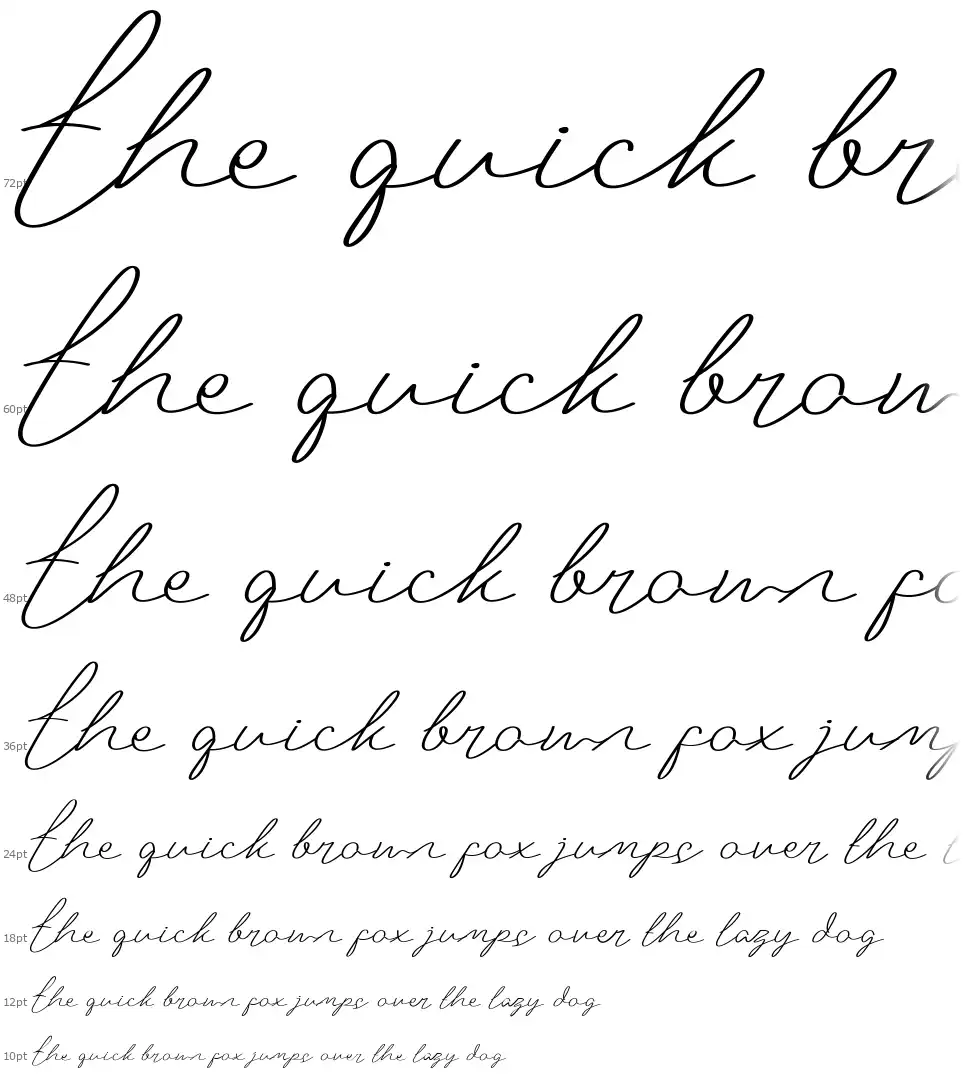 72pt the quick br
60pt the quick brown
48pt the quick brown fo
36pt the quick brown fox jump
24pt the quick brown fox jumps over the
18pt the quick brown fox jumps over the lazy dog
12pt the quick brown fox jumps over the lazy dog
10pt the quick brown fox jumps over the lazy dog